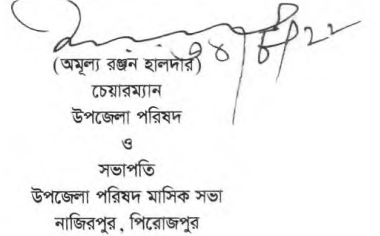 (অমূল্য রঞ্জন হালদার)
চেয়ারম্যান
উপজেলা পরিষদ
ও
সভাপতি
উপজেলা পরিষদ মাসিক সভা
নাজিরপুর, পিরোজপুর